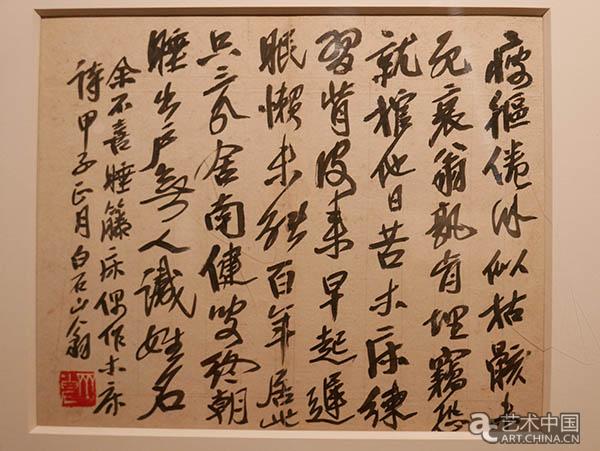 疲軀倦卧似枯骸未
死衰翁孰肯埋竊恐
就棺他日苦木床練
習背皮來早起遲
眠懶未能百年居此
只三舍南健叟終朝
睡出户無人識姓名
余不喜睡籐床偶作木床
詩甲子正月白石山翁
艺术中国
ART.CHINA.CN